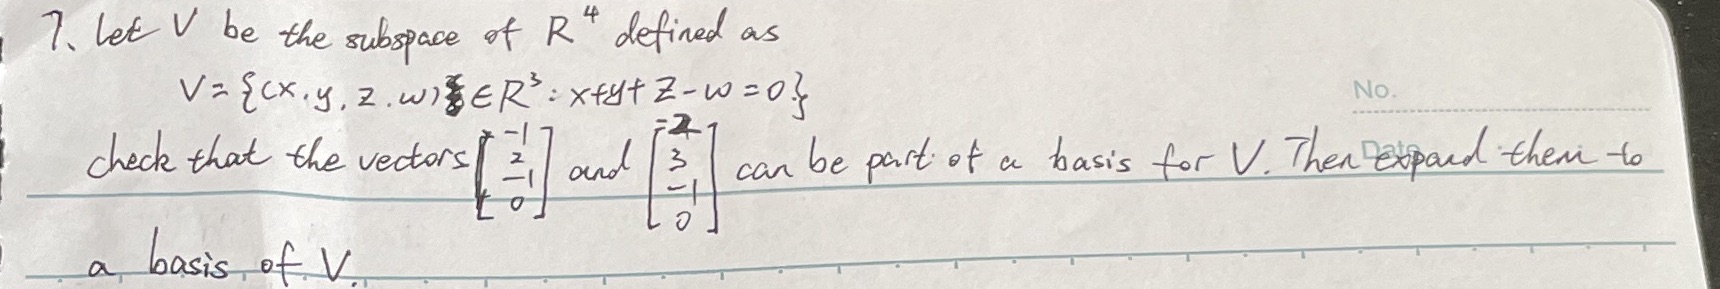 7. Let V be the subspace of R⁴ defined as
V = {(x, y, z, w) ∈ R³ : x+y+z-w=0}
No.
check that the vectors [-1 2 -1 0] and [-2 3 -1 0] can be part of a basis for V. Then expand them to
Date
a basis of V.